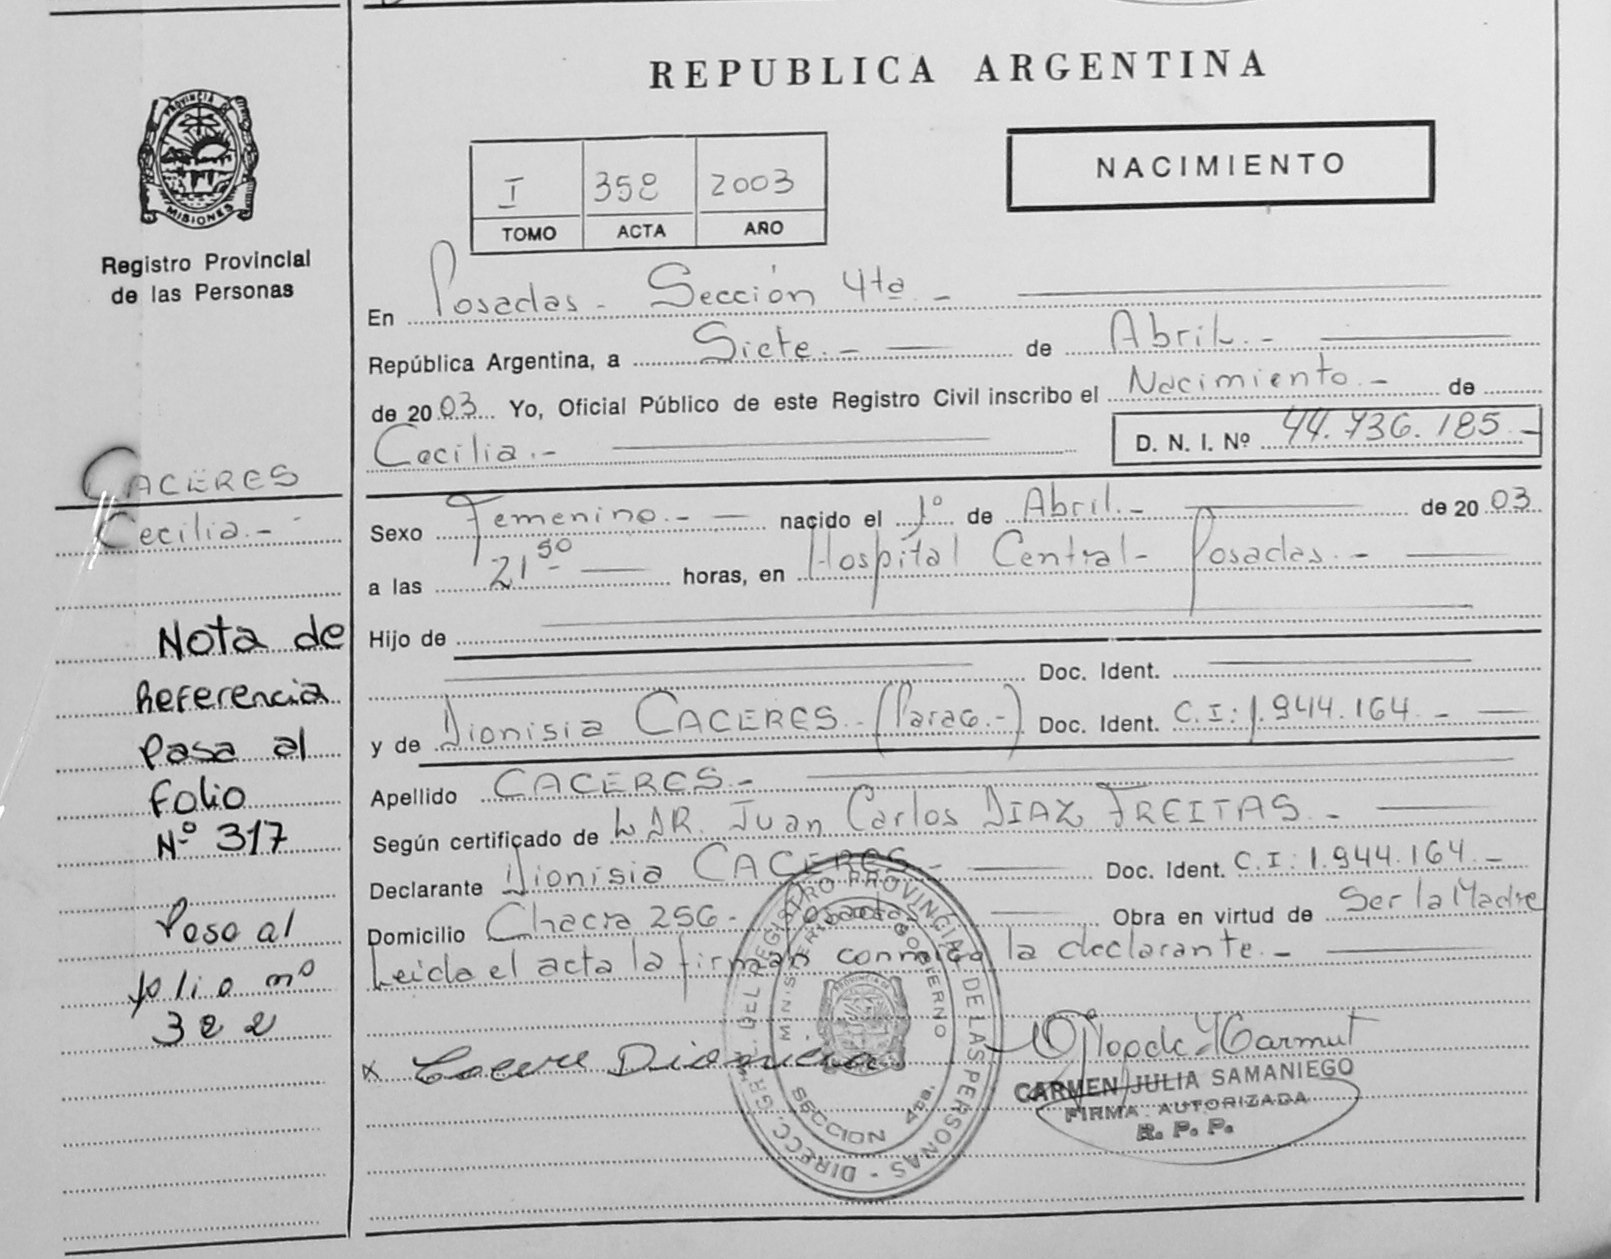 REPUBLICA ARGENTINA
PROVINCIA DE
MISIONES
Registro Provincial
de las Personas
I 358 2003
TOMO ACTA AÑO
NACIMIENTO
En Posadas - Sección 4ta -
República Argentina, a Siete.- de Abril.-
de 2003 Yo, Oficial Público de este Registro Civil inscribo el Nacimiento.- de
Cecilia.- D. N. I. Nº 44.736.185.-
CACERES
Cecilia.-
Sexo Femenino.- nacido el 1º de Abril.- de 2003
a las 21 50 horas, en Hospital Central - Posadas.-
Hijo de
Doc. Ident.
y de Dionisia CACERES.- (Parag.-) Doc. Ident. C.I: 1.944.164.-
Apellido CACERES.-
Según certificado de DR. Juan Carlos DIAZ FREITAS.-
Declarante Dionisia CACERES.- Doc. Ident. C.I: 1.944.164.-
Domicilio Chacra 256 - Posadas Obra en virtud de Ser la Madre
Leida el acta la firman conmigo la declarante.-
Nota de
Referencia
Pasa al
Folio
Nº 317
Paso al
folio nº
322
x Dionisia
DIRECC. GR. DEL REGISTRO PROVINCIAL DE LAS PERSONAS -
MINISTERIO DE GOBIERNO
SECCION 4ta.
CARMEN JULIA SAMANIEGO
FIRMA AUTORIZADA
R. P. P.